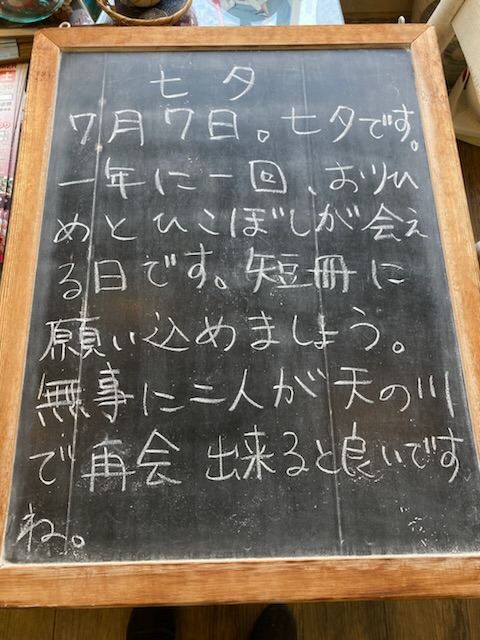 七夕
7月7日。七夕です。
一年に一回、おりひ
めとひこぼしが会え
る日です。短冊に
願い込めましょう。
無事に二人が天の川
で再会出来ると良いです
ね。